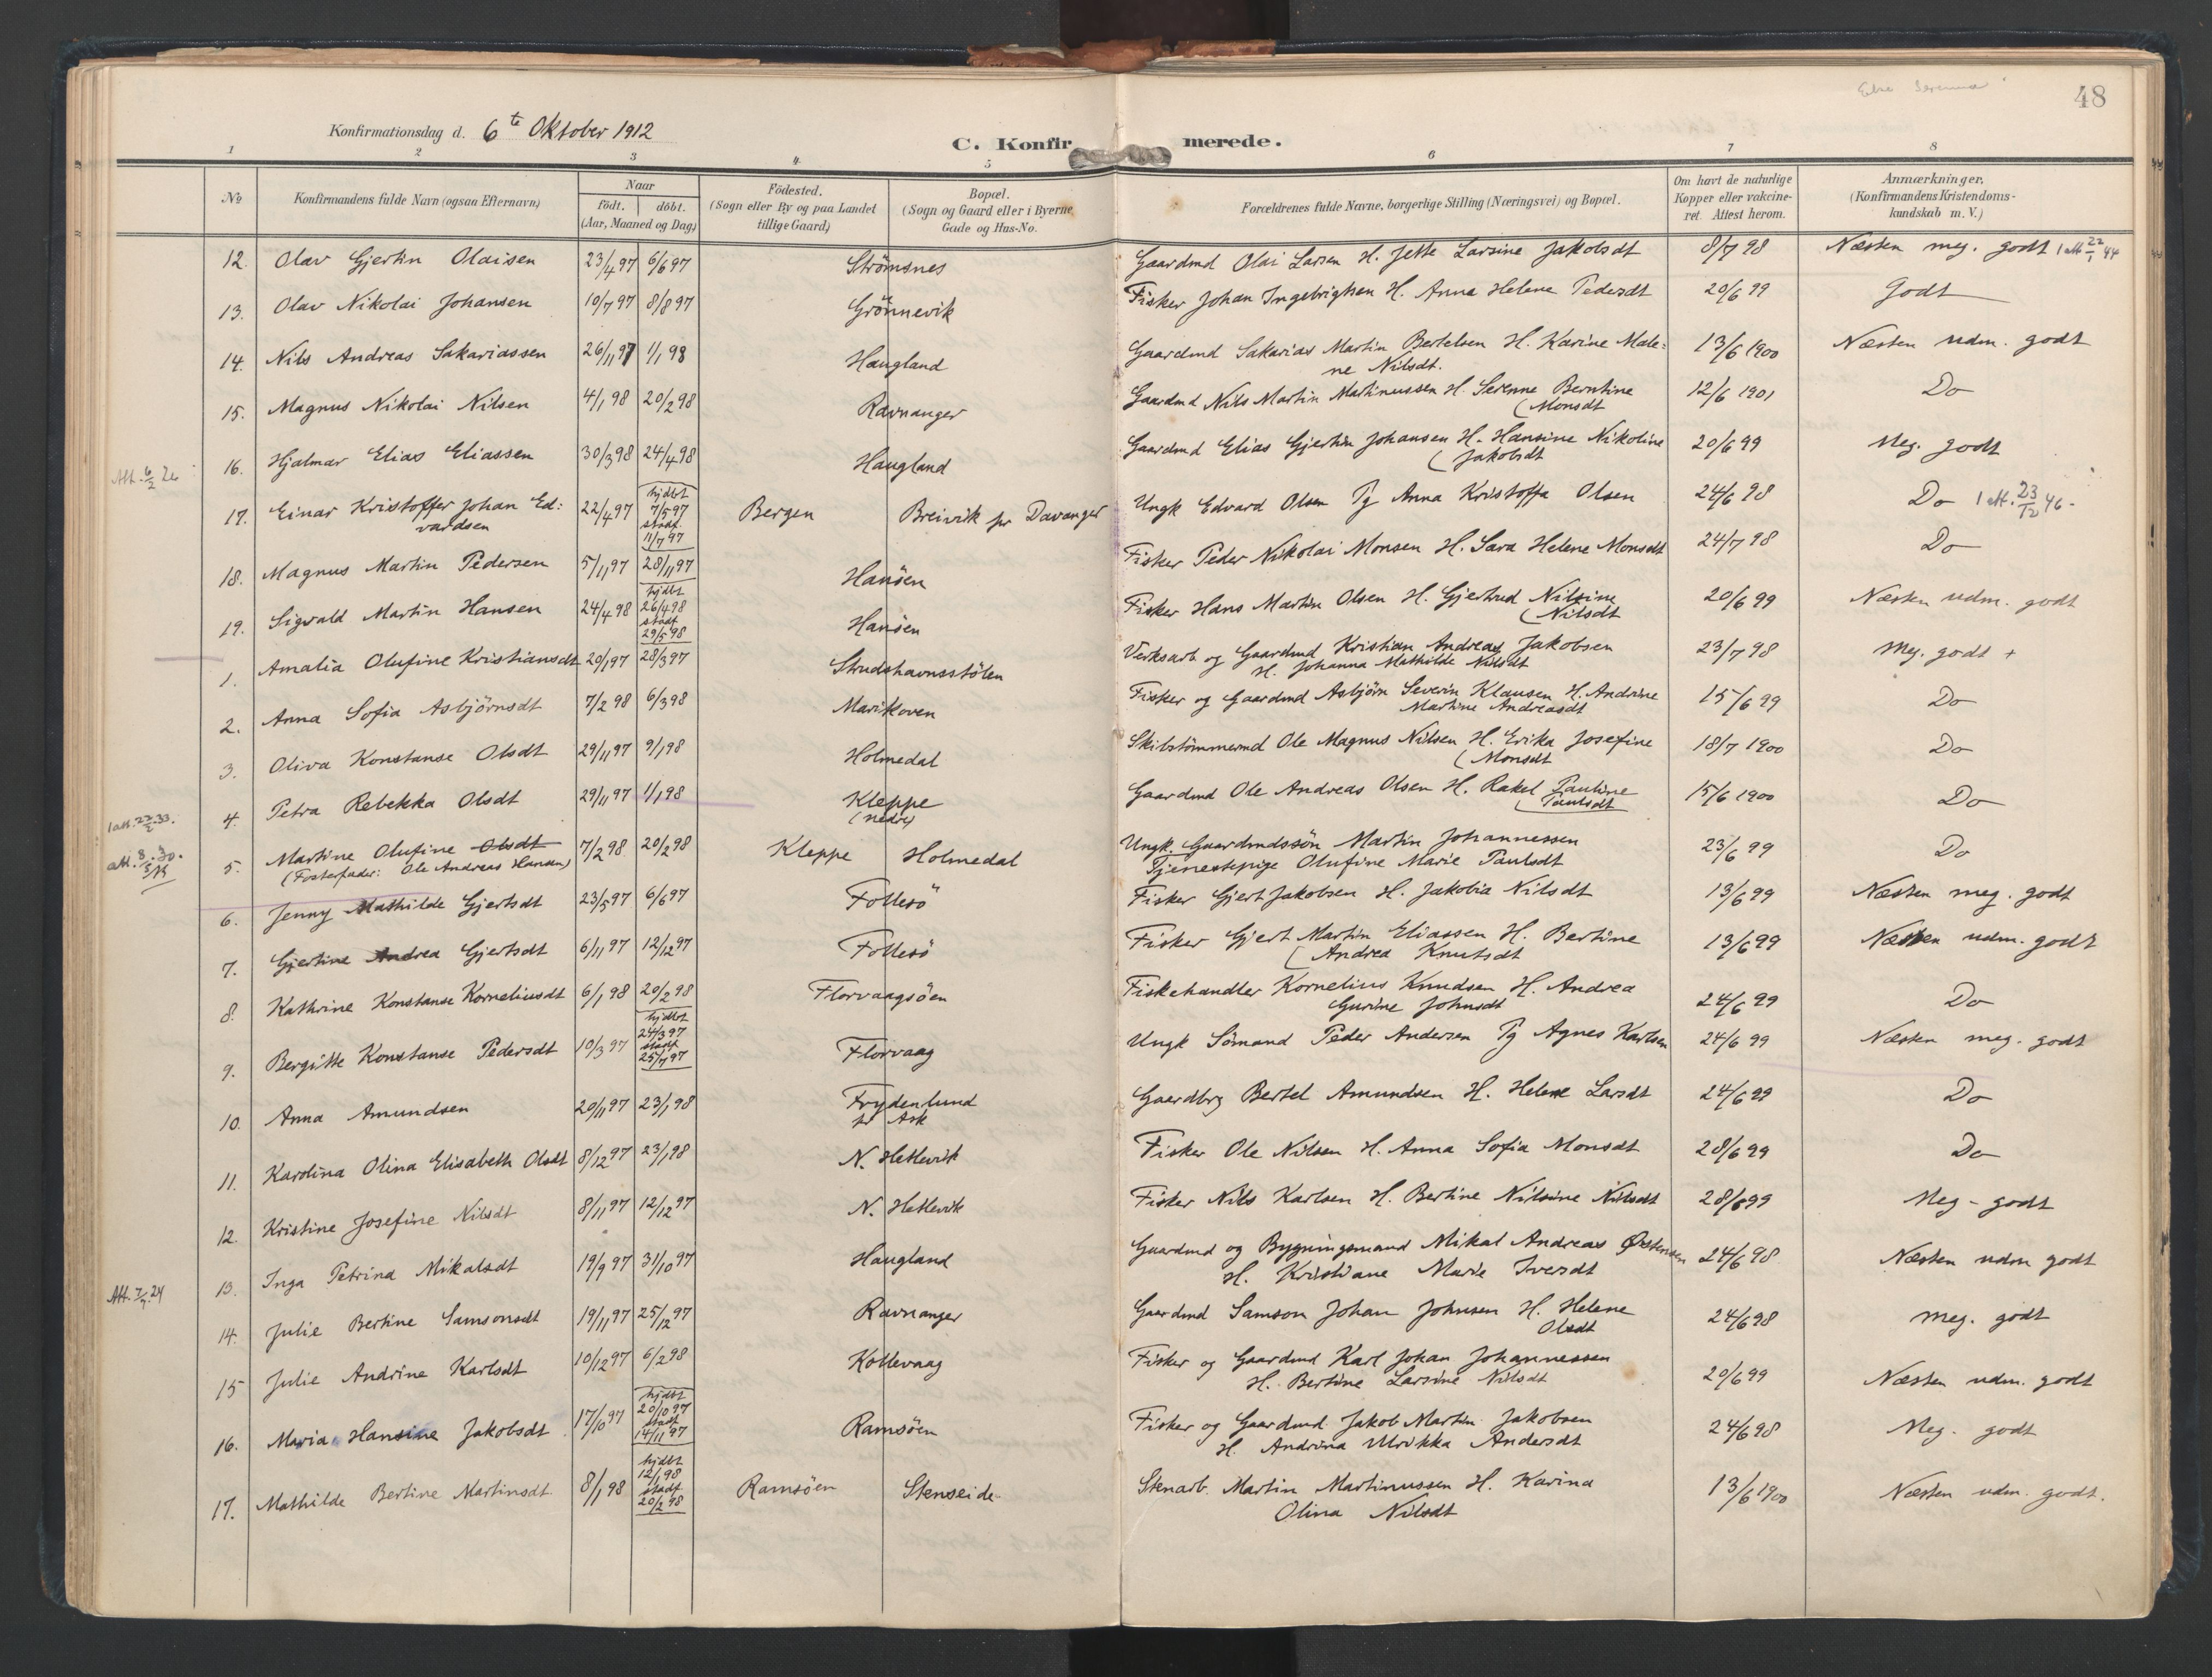 48
Konfirmationsdag d. 6te Oktober 1912
C. Konfirmerede.
1 2 3 4 5 6 7 8
No
Konfirmandens fulde Navn (ogsaa Efternavn)
Naar
födt. döbt.
(Aar, Maaned og Dag)
Födested.
(Sogn eller By og paa Landet
tillige Gaard)
Bopæl.
(Sogn og Gaard eller i Byerne
Gade og Hus-No.
Forældrenes fulde Navne, borgerlige Stilling (Næringsvei) og Bopæl.
Om havt de naturlige
Kopper eller vakcine-
ret. Attest herom.
Anmærkninger.
(Konfirmandens Kristendoms-
kundskab m. V.)
12. Olav Gjertin Olaisen 23/4 97 6/6 97 Strömsnes Gaardmd Olai Larsen H. Jette Larsine Jakobsdt 8/7 98 Næsten meg. godt 1 att 22/1 44
13. Olav Nikolai Johansen 10/7 97 8/8 97 Grönnevik Fisker Johan Ingebrigtsen H. Anna Helene Pedersdt 20/6 99 Godt
14. Nils Andreas Sakariassen 26/11 97 1/1 98 Haugland Gaardmd Sakarias Martin Bertelsen H. Karine Male=
ne Nilsdt. 13/6 1900 Næsten udm. godt
15. Magnus Nikolai Nilsen 4/1 98 20/2 98 Ravnanger Gaardmd Nils Martin Martinussen H. Serenne Berntine
(Monsdt 12/6 1901 Do
16. Hjalmar Elias Eliassen 30/3 98 24/4 98 Haugland Gaardmd Elias Gjertin Johansen H. Hansine Nikoline
(Jakobsdt 20/6 99 Meg. godt
Att. 6/2 26
17. Einar Kristoffer Johan Ed:
vardsen 22/4 97 hjdbt
7/5 97
stadf.
11/7 97 Bergen Breivik pr Davanger Ungk Edvard Olsen Pg Anna Kristoffa Olsen 24/6 98 Do 1 att. 23/12 46.
18. Magnus Martin Pedersen 5/11 97 28/11 97 Hanöen Fisker Peder Nikolai Monsen H. Sara Helene Monsdt 24/7 98 Do
19. Sigvald Martin Hansen 24/4 98 hjdbt
26/4 98
stadf
29/5 98 Hanöen Fisker Hans Martin Olsen H. Gjertrud Nilsine
(Nilsdt 20/6 99 Næsten udm. godt
1. Amalia Olufine Kristiansdt 20/1 97 28/3 97 Strudshavnsstölen Verksarb og Gaardmd Kristian Andreas Jakobsen
H. Johanna Mathilde Nilsdt 23/7 98 Meg. godt +
2. Anna Sofia Asbjörnsdt 7/2 98 6/3 98 Marikoven Fisker og Gaardmd Asbjörn Severin Klausen H. Andrine
Martine Andreasdt 15/6 99 Do
3. Oliva Konstanse Olsdt 29/11 97 9/1 98 Holmedal Skibstömmermd Ole Magnus Nilsen H. Erika Josefine
(Monsdt 18/7 1900 Do
4. Petra Rebekka Olsdt 29/11 97 1/1 98 Kleppe
(nedre) Gaardmd Ole Andreas Olsen H. Rakel Pauline
(Paulsdt 15/6 1900 Do
5. Martine Olufine Olsdt
(Fosterfader: Ole Andreas Hansen) 7/2 98 20/2 98 Kleppe Holmedal Ungk. Gaardmdssön Martin Johannessen
Tjenestepige Olufine Marie Paulsdt 23/6 99 Do
6. Jenny Mathilde Gjertsdt 23/5 97 6/6 97 Follesö Fisker Gjert Jakobsen H. Jakobia Nilsdt 13/6 99 Næsten meg. godt
7. Gjertine Andrea Gjertsdt 6/11 97 12/12 97 Follesö Fisker Gjert Martin Eliassen H. Bertine
(Andrea Knutsdt 13/6 99 Næsten udm. godt
8. Kathrine Konstanse Korneliusdt 6/1 98 20/2 98 Florvaagsöen Fiskehandler Kornelius Knudsen H. Andrea
Gurine Johnsdt 24/6 99 Do
9. Bergitte Konstanse Pedersdt 10/3 97 hjdbt
24/3 97
stadf
25/7 97 Florvaag Ungk Sömand Peder Andersen Pg Agnes Karlsen 24/6 99 Næsten meg. godt
10. Anna Amundsen 20/11 97 23/1 98 Frydenlund
pr Ask Gaardbrg Bertel Amundsen H. Helene Larsdt 24/6 99 Do
11. Karolina Olina Elisabeth Olsdt 8/12 97 23/1 98 N. Hetlevik Fisker Ole Nilsen H. Anna Sofia Monsdt 28/6 99 Do
12. Kristine Josefine Nilsdt 8/11 97 12/12 97 N. Hetlevik Fisker Nils Karlsen H. Bertine Nilsine Nilsdt 28/6 99 Meg - godt
13. Inga Petrina Mikalsdt 19/9 97 31/10 97 Haugland Gaardmd og Bygningsmand Mikal Andreas Östensen
H. Kristiane Marie Iversdt 24/6 98 Næsten udm godt
14. Julie Bertine Samsonsdt 19/11 97 25/12 97 Ravnanger Gaardmd Samson Johan Johnsen H. Helene
Olsdt 24/6 98 Meg. godt
15 Julie Andrine Karlsdt 10/12 97 6/2 98 Kollevaag Fisker og Gaardmd Karl Johan Johannessen
H. Bertine Larsine Nilsdt 20/6 99 Næsten udm. godt
16. Maria Hansine Jakobsdt 17/10 97 hjdbt
20/10 97
stadf
14/11 97 Ramsöen Fisker og Gaardmd Jakob Martin Jakobsen
H. Andrina Ulrikka Andersdt 24/6 98 Meg. godt
17. Mathilde Bertine Martinsdt. 8/1 98 hjdbt
12/1 98
stadf
20/2 98 Ramsöen Stenseide Stenarb. Martin Martinussen H. Karina
Olina Nilsdt 13/6 1900 Næsten udm. godt.